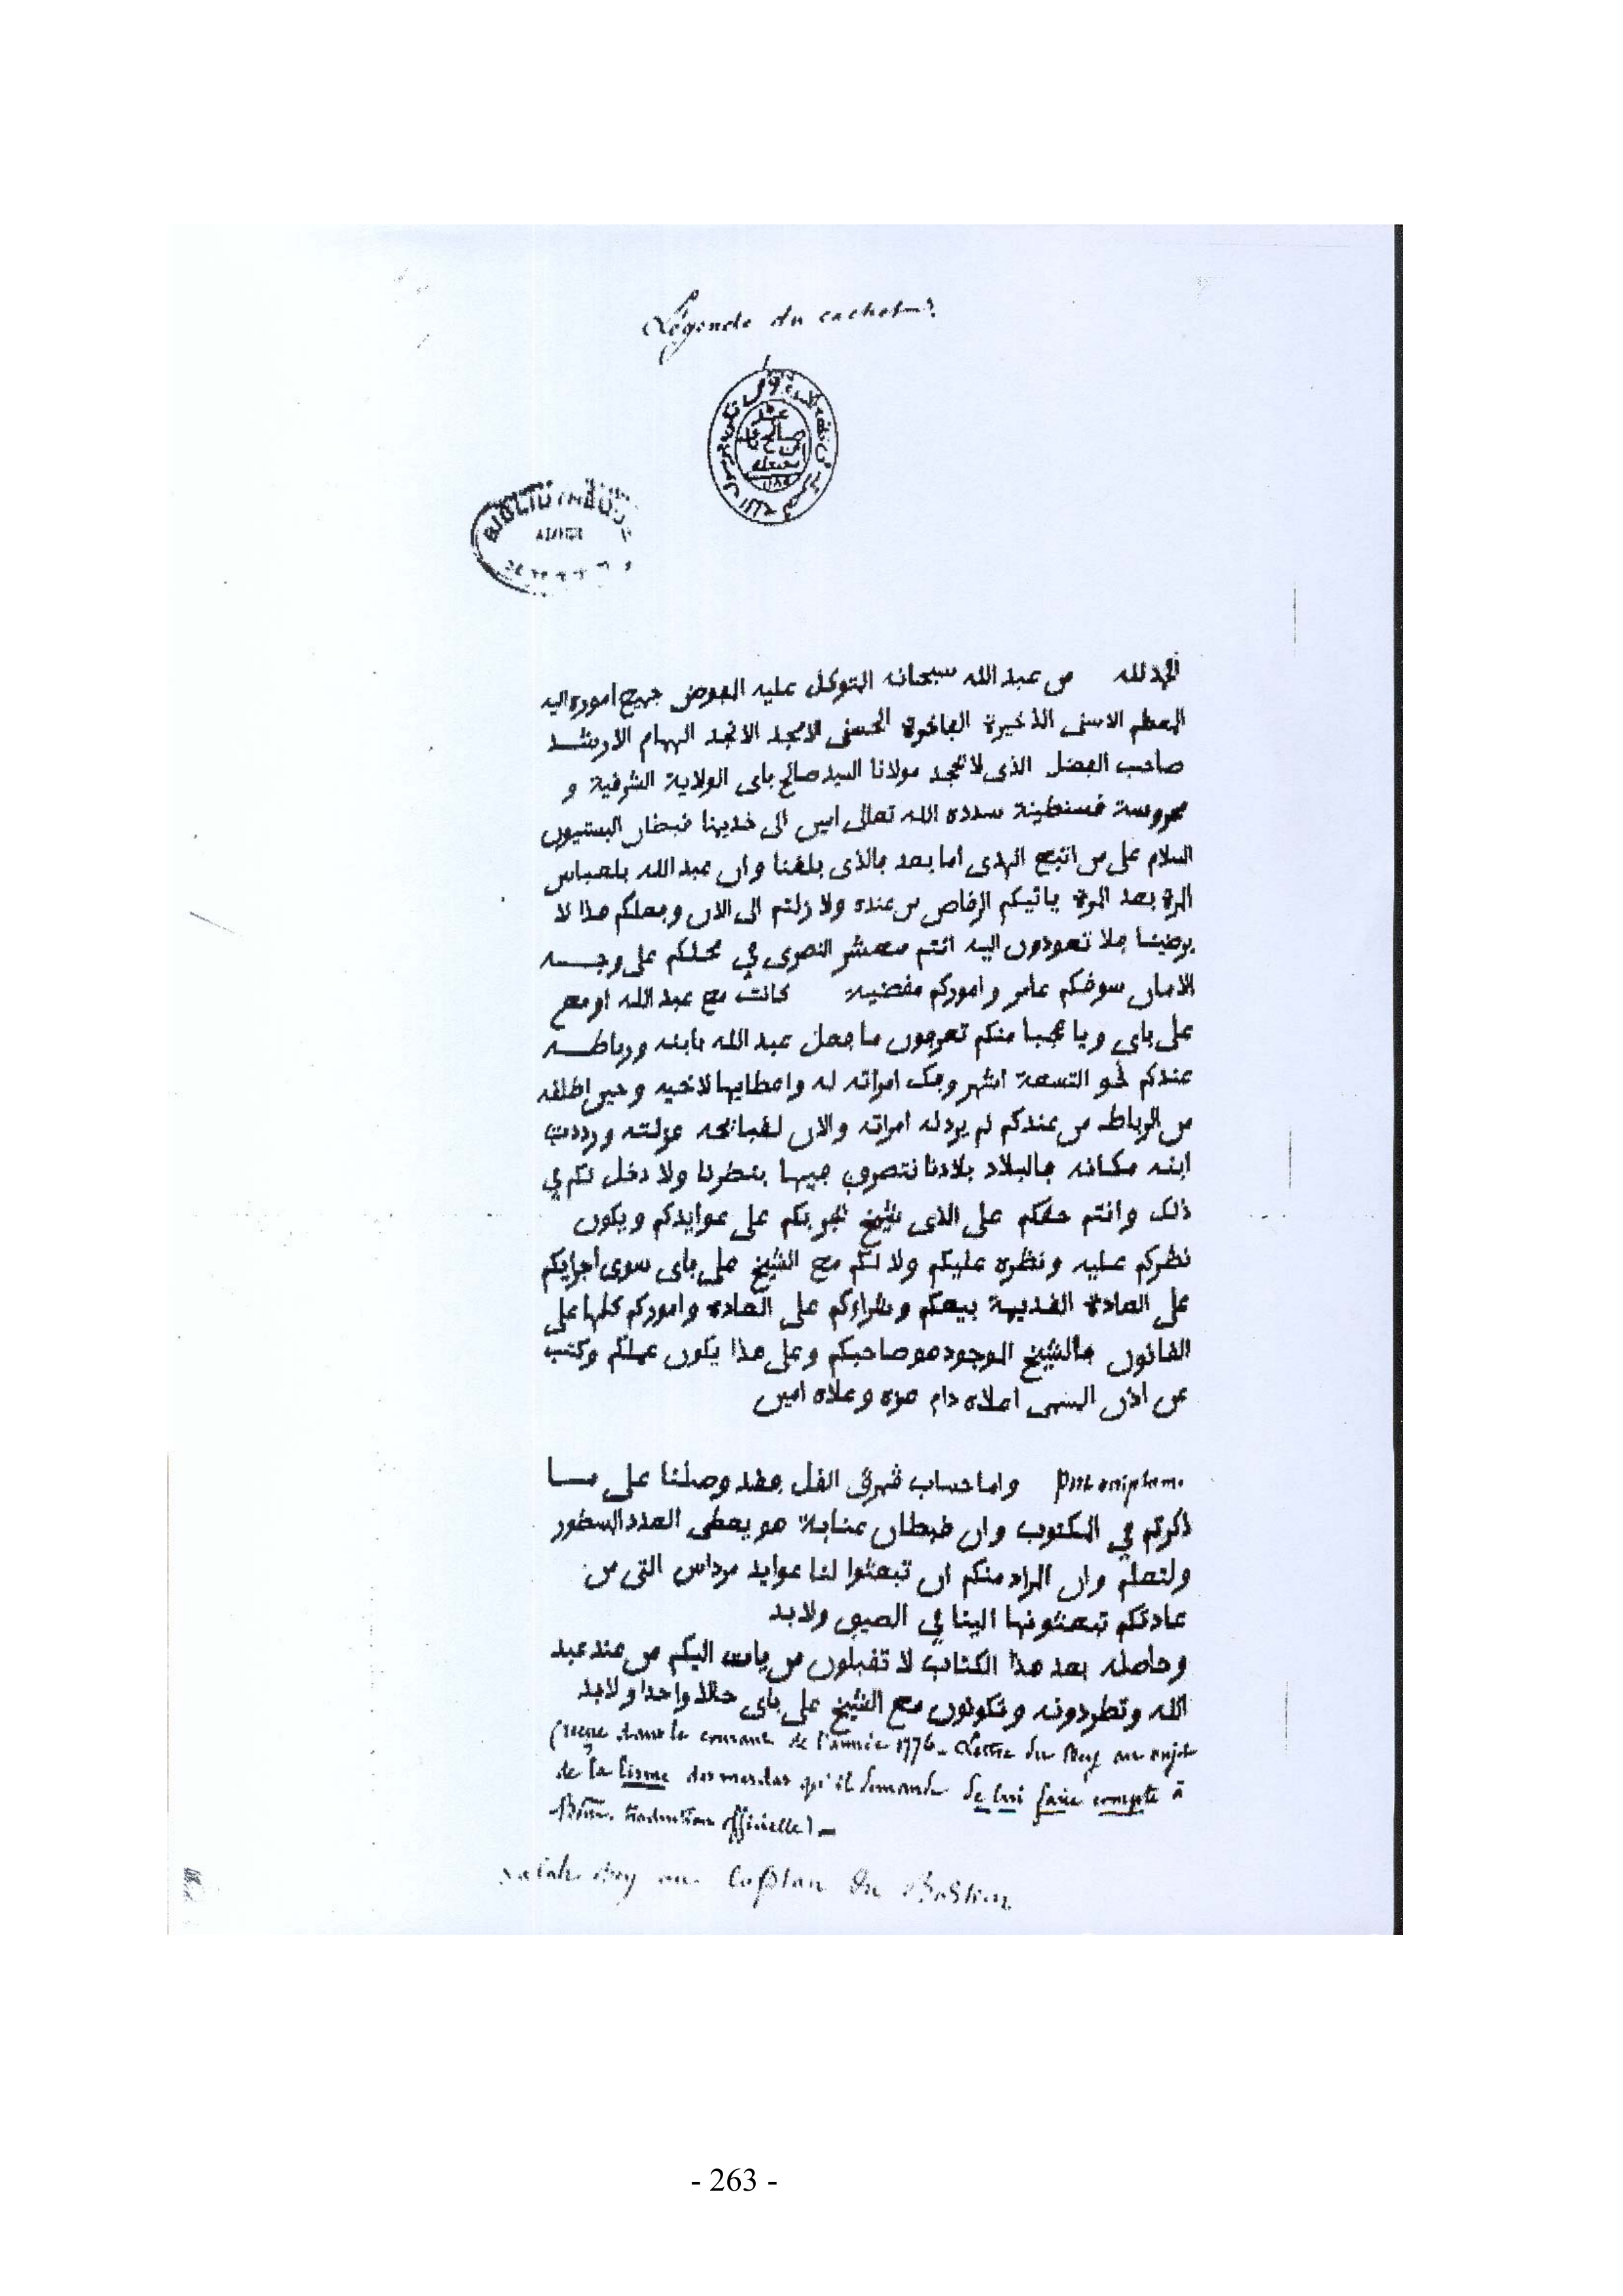 Légende du cachet
BIBLIOTHÈQUE
ALGER
الحمد لله من عبد الله سبحانه المتوكل عليه المفوض جميع اموره اليه
المعظم الاسنى الذخيرة الفاخرة الحسنى الامجد الانجد الهمام الارشد
صاحب الفضل الذى لا يجحد مولانا السيد صالح باى الولاية الشرفية و
محروسة قسنطينة سدده الله تعالى امين الى خديمنا قبطان البستيون
السلام على من اتبع الهدى اما بعد فالذى بلغنا وان عبد الله بلعباس
المرة بعد المرة ياتيكم الرقاص من عنده ولا زلتم الى الان وفعلكم هذا لا
يرضينا فلا تعودون اليه انتم معشر النصرى في محلكم على وجه
الامان سوقكم عامر واموركم مقضية كانت مع عبد الله او مع
على باى ويا عجبا منكم تعرفون ما فعل عبد الله بابنه ورباطه
عندكم نحو التسعة اشهر وفك امراته له واعطايها لاخيه وحين اطلقه
من الرباط من عندكم لم يرد له امراته والان لقبائحه عزلته ورددت
ابنه مكانه فالبلاد بلادنا نتصرف فيها بنظرنا ولا دخل لكم في
ذلك وانتم حقكم على الذى شيخ نجربكم على عوايدكم ويكون
نظركم عليه ونظره عليكم ولا لكم مع الشيخ على باى سوى اجرايكم
على العادة القديمة بيعكم وشراوكم على العادة واموركم كلها على
القانون فالشيخ الموجود هو صاحبكم وعلى هذا يكون عملكم وكتب
عن اذن المسمى اعلاه دام عزه وعلاه امين
Post scriptum. واما حساب قمرق القل فقد وصلنا على ما
ذكرتم في المكتوب وان قبطان عنابة هو يعطى العدد المسطور
ولتعلم وان المراد منكم ان تبعثوا لنا عوايد مرداس التى من
عادتكم تبعثونها الينا في الصيف ولابد
وحاصله بعد هذا الكتاب لا تقبلون من يات اليكم من عند عبد
الله وتطردونه وتكونون مع الشيخ على باى حالا واحدا ولابد
(reçue dans le courant de l'année 1776. Lettre du Bey au sujet
de la lisme des merdas qu'il demande de lui faire compte à
Bône. traduction officielle)
Salah Bey au Capitan du Bastion
- 263 -